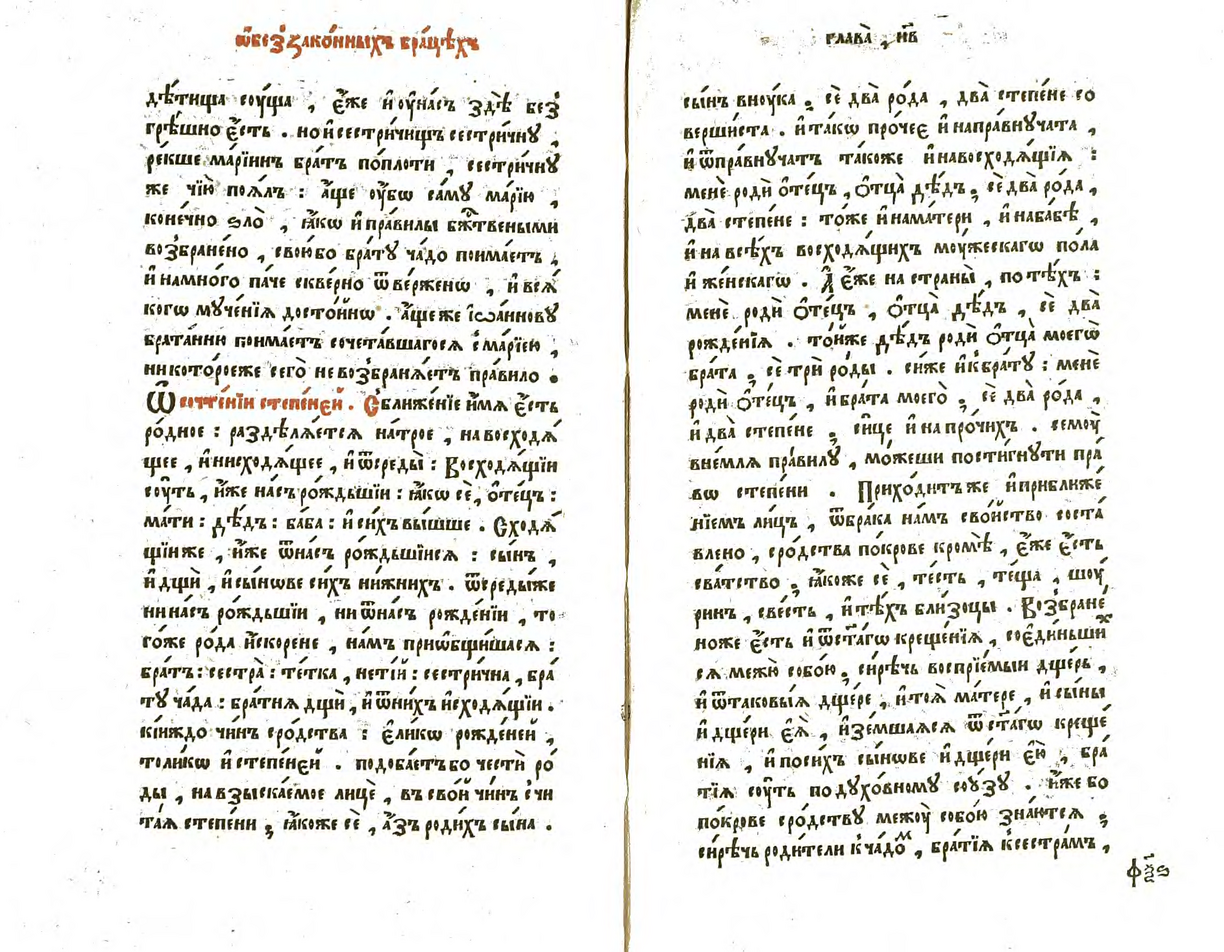 ѡ҆беззако́нныхъ бра́цѣхъ
дѣ́тища сꙋ́ща , є҆́же и҆оу҆на́съ здѣ̀ без̾
грѣ́шно є҆́сть . но и҆сестри́чищъ сестри́чнꙋ ,
ре́кше марі́инъ бра́тъ по́плоти , сестри́чнꙋ
же чїю̀ поя́лъ : а҆́ще оу҆́бѡ самꙋ̀ марі́ю ,
коне́чно ѕло̀ , ꙗ҆́кѡ и҆пра́вилы бж҃твеными
возбране́но , свою́бо бра́тꙋ ча́до поима́етъ ,
и҆ намно́го па́че скве́рно ѿве́рженѡ , и҆ вся́
когѡ мꙋче́нїѧ досто́йнѡ . а҆́щеже і҆ѡа́нновꙋ
брата́нню поима́етъ сочета́вшагося с̾ марі́ею ,
никото́роеже сего̀ невозбраня́етъ пра́вило .
Ѡ҆ сочте́нїи степе́ней . Сближе́нїе и҆́мя є҆́сть
ро́дное : раздѣля́ется на́трое , навосходя́
щее , и҆нисходя́щее , и҆ ѿсреды̀ : Восходя́щїи
сꙋ́ть , и҆́же на́съ ро́ждьшїи : ꙗ҆́кѡ сѐ , ѻ҆те́цъ :
ма́ти : дѣ́дъ : ба́ба : и҆ си́хъ вы́шше . Сходя́
щїиже , и҆́же ѿна́съ ро́ждьшїися : сы́нъ ,
и҆ дщѝ , и҆ сы́нѡве си́хъ ни́жнихъ . ѿсреды́же
нина́съ ро́ждьшїи , ни ѿна́съ рожде́нїи , то
го́же ро́да и҆ско́рене , на́мъ приѡбщи́шася :
бра́тъ : сестра̀ : те́тка , неті́й : сестри́чна , бра́
тꙋ ча́да : бра́тня дщѝ , и҆ ѿни́хъ и҆сходя́щїи .
кі́иждо чи́нъ сро́дства : є҆ли́кѡ рожде́ней ,
толи́кѡ и҆ степе́ней . подоба́етъ бо честѝ ро́
ды , навзыска́емое лицѐ , въ сво́й чи́нъ с̾чи
та́я степе́ни ; ꙗ҆́коже сѐ , а҆́зъ роди́хъ сы́на .
глава̀ , н҃в
сы́нъ внꙋ́ка ; сѐ два̀ ро́да , два̀ степе́не со
верши́ста . и҆ та́кѡ про́чее и҆ напра́внꙋчата ,
и҆ ѿпра́внꙋчатъ та́коже и҆ навосходя́щїя :
менѐ родѝ ѻ҆те́цъ , ѻ҆тца̀ дѣ́дъ ; сѐ два̀ ро́да ,
два̀ степе́не : то́же и҆ нама́тери , и҆ наба́бѣ ,
и҆ на всѣ́хъ восходя́щихъ мꙋ́жескагѡ по́ла
и҆ же́нскагѡ . А҆ є҆́же на страны̀ , по тѣ́хъ :
менѐ родѝ ѻ҆те́цъ , ѻ҆тца̀ дѣ́дъ , сѐ два̀
рожде́нїя . то́йже дѣ́дъ родѝ ѻ҆тца̀ моегѡ̀
бра́та ; сѐ трѝ ро́ды . си́же и҆ к̾бра́тꙋ : менѐ
родѝ ѻ҆те́цъ , и҆ бра́та моего̀ ; сѐ два̀ ро́да ,
и҆ два̀ степе́не ; си́це и҆ на про́чихъ . семꙋ̀
вне́мля пра́вилꙋ , мо́жеши пости́гнꙋти пра́
вѡ степе́ни . Прихо́дитъ же и҆ приближе́
нїемъ ли́цъ , ѿбра́ка на́мъ сво́йство соста́
влено , сро́дства по́крове кромѣ̀ , є҆́же є҆́сть
сва́тство ; ꙗ҆́коже сѐ , те́сть , те́ща , шꙋ́
ринъ , све́сть , и҆ тѣ́хъ бли́зоцы . Возбране́
ноже є҆́сть и҆ ѿст҃а́гѡ креще́нїя , соєди́ньших
ся межю̀ собо́ю ; си́рѣчь воспрїе́мыи дще́рь ,
и҆ ѿтаковы́я дще́ре , и҆ тоя̀ ма́тере , и҆ сы́ны
и҆ дще́ри є҆я̀ , и҆зе́мшаяся ѿст҃а́гѡ креще́
нїя , и҆ по си́хъ сы́нѡве и҆ дще́ри є҆ю̀ , бра́
тїя сꙋ́ть по дꙋхо́вномꙋ соу́зꙋ . и҆́же бо
покро́ве сро́дствꙋ межꙋ̀ собо́ю зна́ются ;
си́рѣчь роди́тели к̾ча́дом , бра́тїя к̾сестра́мъ ,
ф҃ч̾ѕ